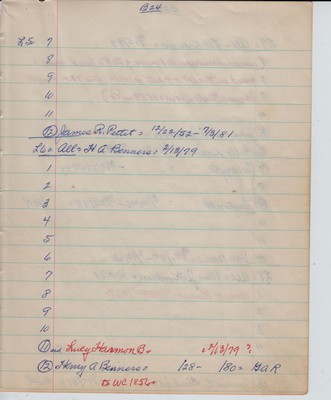 B24
L5= 7
8
9
10
11
12 James R. Pettet = 12/22/52 - 7/3/81
L6= All = H A Benners = 2/13/79
1
2
3
4
5
6
7
8
9
10
11 Lucy Harmon B= 2/13/79 ?
12 Henry A Benners= /28- /80= G a R
WC 1856